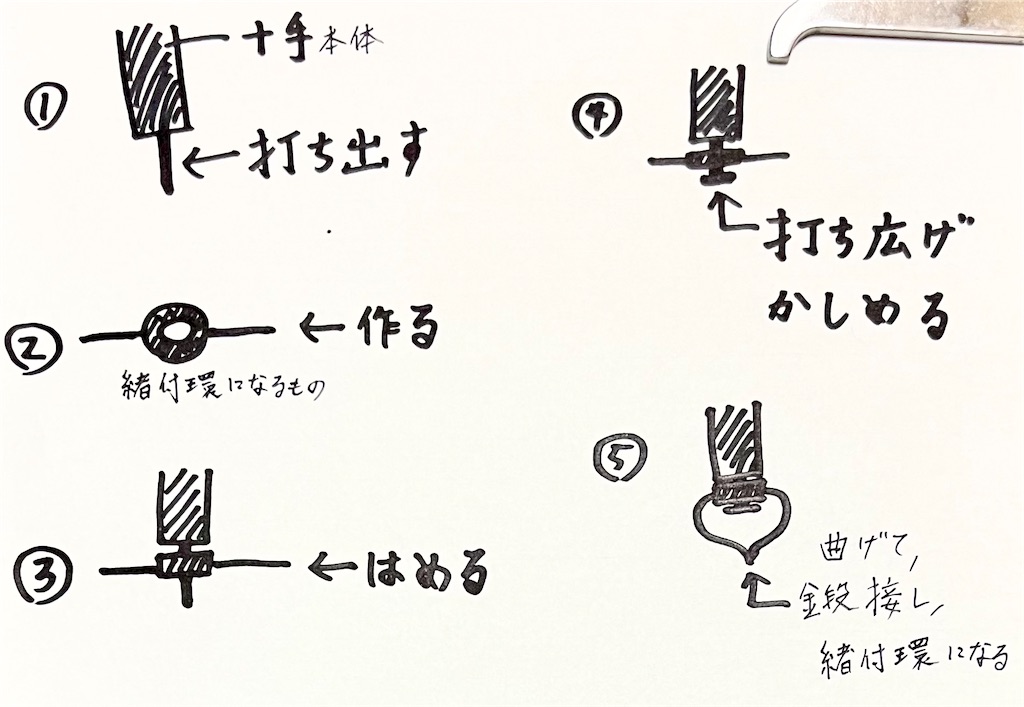 ① 十手本体
←打ち出す
② ←作る
緒付環になるもの
③ ←はめる
④
打ち広げ
かしめる
⑤
曲げて、
鍛接し、
緒付環になる